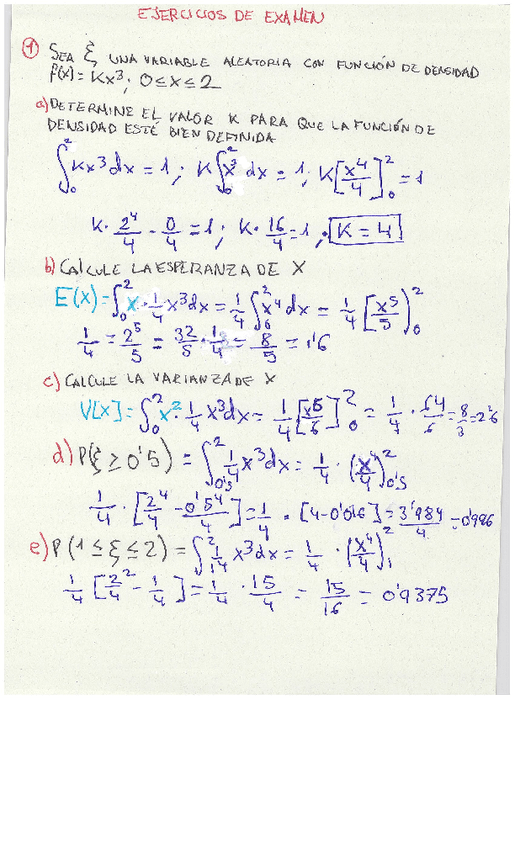 EJERCICIOS DE EXAMEN
① SEA ξ UNA VARIABLE ALEATORIA CON FUNCIÓN DE DENSIDAD
f(x) = Kx³; 0≤x≤2
a) DETERMINE EL VALOR K PARA QUE LA FUNCIÓN DE
DENSIDAD ESTÉ BIEN DEFINIDA
∫₀² Kx³dx = 1; K∫₀² x³ dx = 1; K[x⁴/4]₀² = 1
K · 2⁴/4 - 0/4 = 1; K · 16/4 = 1; K = 4
b) CALCULE LA ESPERANZA DE X
E(x) = ∫₀² x · 1/4 x³dx = 1/4 ∫₀² x⁴dx = 1/4 [x⁵/5]₀²
1/4 = 2⁵/5 = 32/5 · 1/4 = 8/5 = 1'6
c) CALCULE LA VARIANZA DE X
V[x] = ∫₀² x² · 1/4 x³dx = 1/4 [x⁶/6]₀² = 1/4 · 64/6 = 8/3 = 2'6
d) P(ξ ≥ 0'5) = ∫₀'₅² 1/4 x³dx = 1/4 · (x⁴/4)₀'₅²
1/4 · [2⁴/4 - 0'5⁴/4] = 1/4 · [4 - 0'016] = 3'984/4 = 0'996
e) P(1 ≤ ξ ≤ 2) = ∫₁² 1/4 x³dx = 1/4 · (x⁴/4)₁²
1/4 [2²/4 - 1/4] = 1/4 · 15/4 = 15/16 = 0'9375